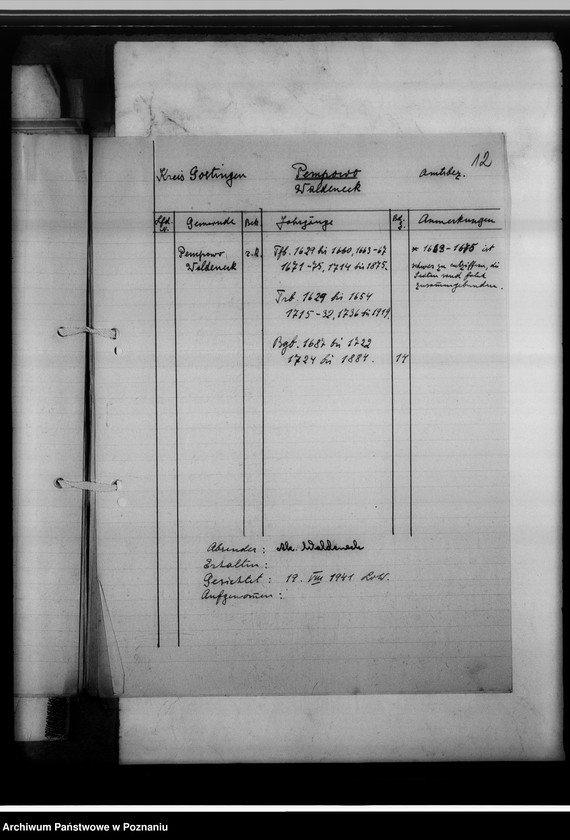 12
Kreis Gostingen Pempowo Amtsbez.
Waldeneck
Lfd. N. Gemeinde Bek. Jahrgänge Bd. Z. Anmerkungen
Pempowo, r.k. Tfb. 1629 bis 1660, 1663-67 * 1663-1675 ist
Waldeneck 1671-75, 1714 bis 1875. schwer zu entziffern, die
Seiten sind falsch
zusammengebunden.
Trb. 1629 bis 1654
1715-32, 1736 bis 1919.
Bgb. 1687 bis 1722
1724 bis 1884. 14
Absender: Waldeneck
Erhalten:
Gesichtet: 19. VIII 1941
Aufgenommen:
Archiwum Państwowe w Poznaniu